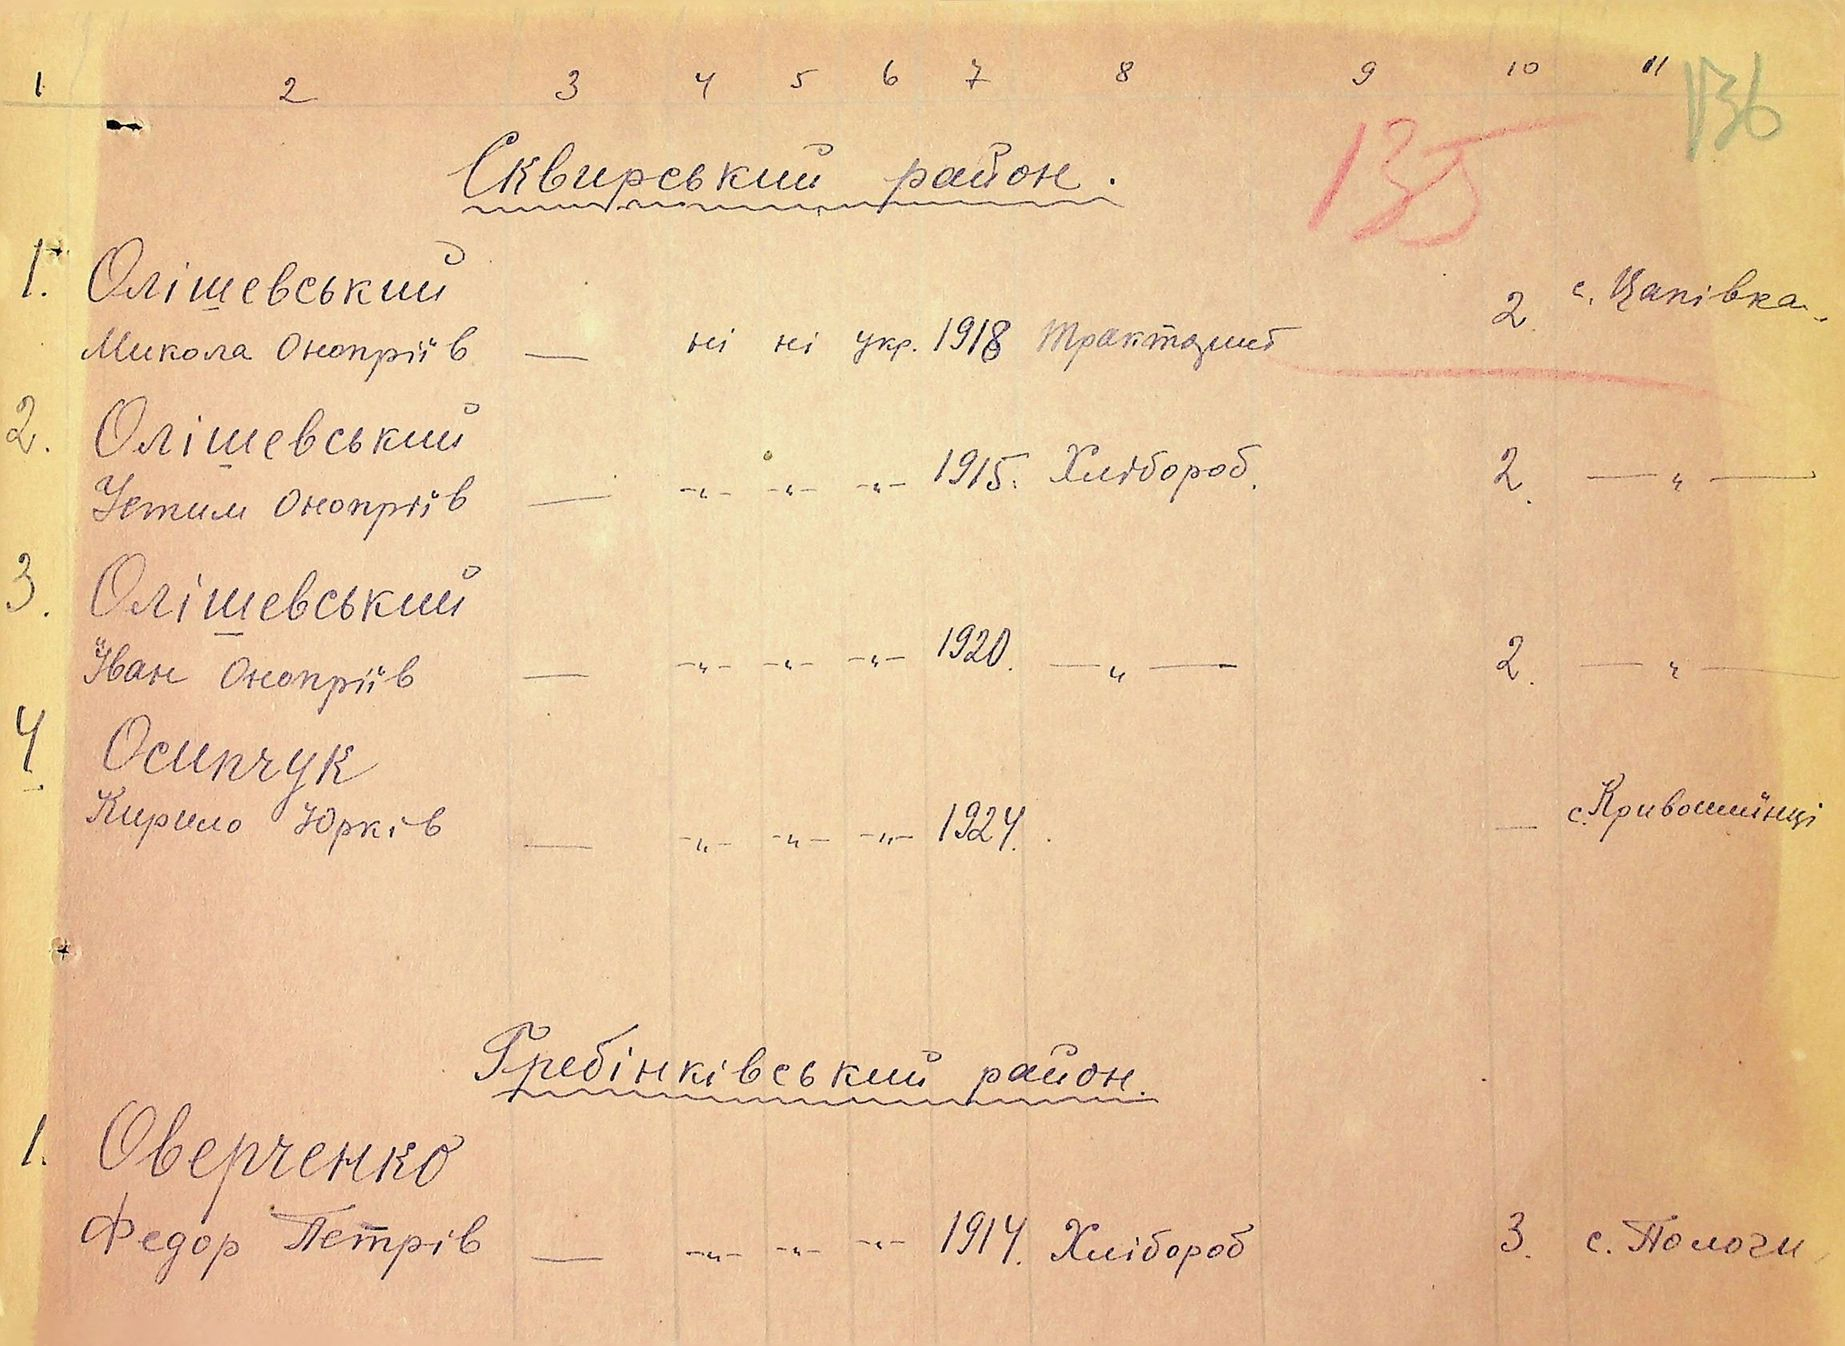 1 2 3 4 5 6 7 8 9 10 11
136
135
Сквирський район.
1. Олішевський
Микола Онопріїв — ні ні укр. 1918 Тракторист 2. с. Цапівка
2. Олішевський
Устим Онопріїв — -„- -„- -„- 1915. Хлібороб. 2. —„—
3. Олішевський
Іван Онопріїв — -„- -„- -„- 1920. —„— 2. —„—
4. Осипчук
Кирило Юрків — -„- -„- -„- 1924. — с. Кривошиїнці
Гребінківський район.
1. Оверченко
Федор Петрів — -„- -„- -„- 1914. Хлібороб 3. с. Пологи